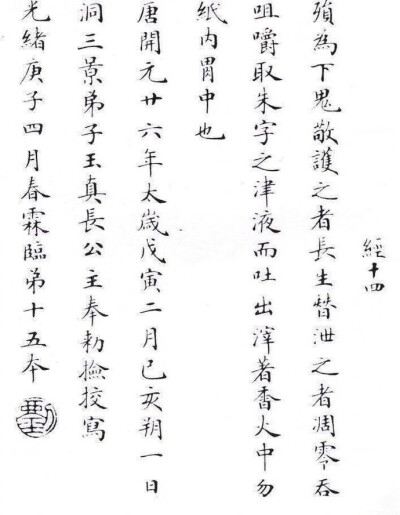 經十四
殞為下鬼敬護之者長生替泄之者凋零吞
咀嚼取朱字之津液而吐出滓著香火中勿
紙內胃中也
唐開元廿六年太歲戊寅二月己亥朔一日
洞三景弟子玉真長公主奉勅撿挍寫
光緒庚子四月春霖臨弟十五本